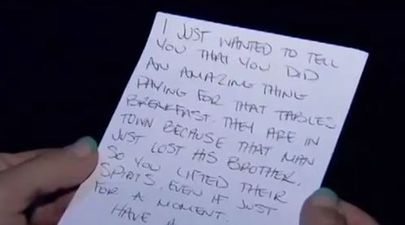 I JUST WANTED TO TELL
YOU THAT YOU DID
AN AMAZING THING
PAYING FOR THAT TABLES
BREAKFAST. THEY ARE IN
TOWN BECAUSE THAT MAN
JUST LOST HIS BROTHER.
SO YOU LIFTED THEIR
SPIRITS, EVEN IF JUST
FOR A MOMENT.
HAVE A